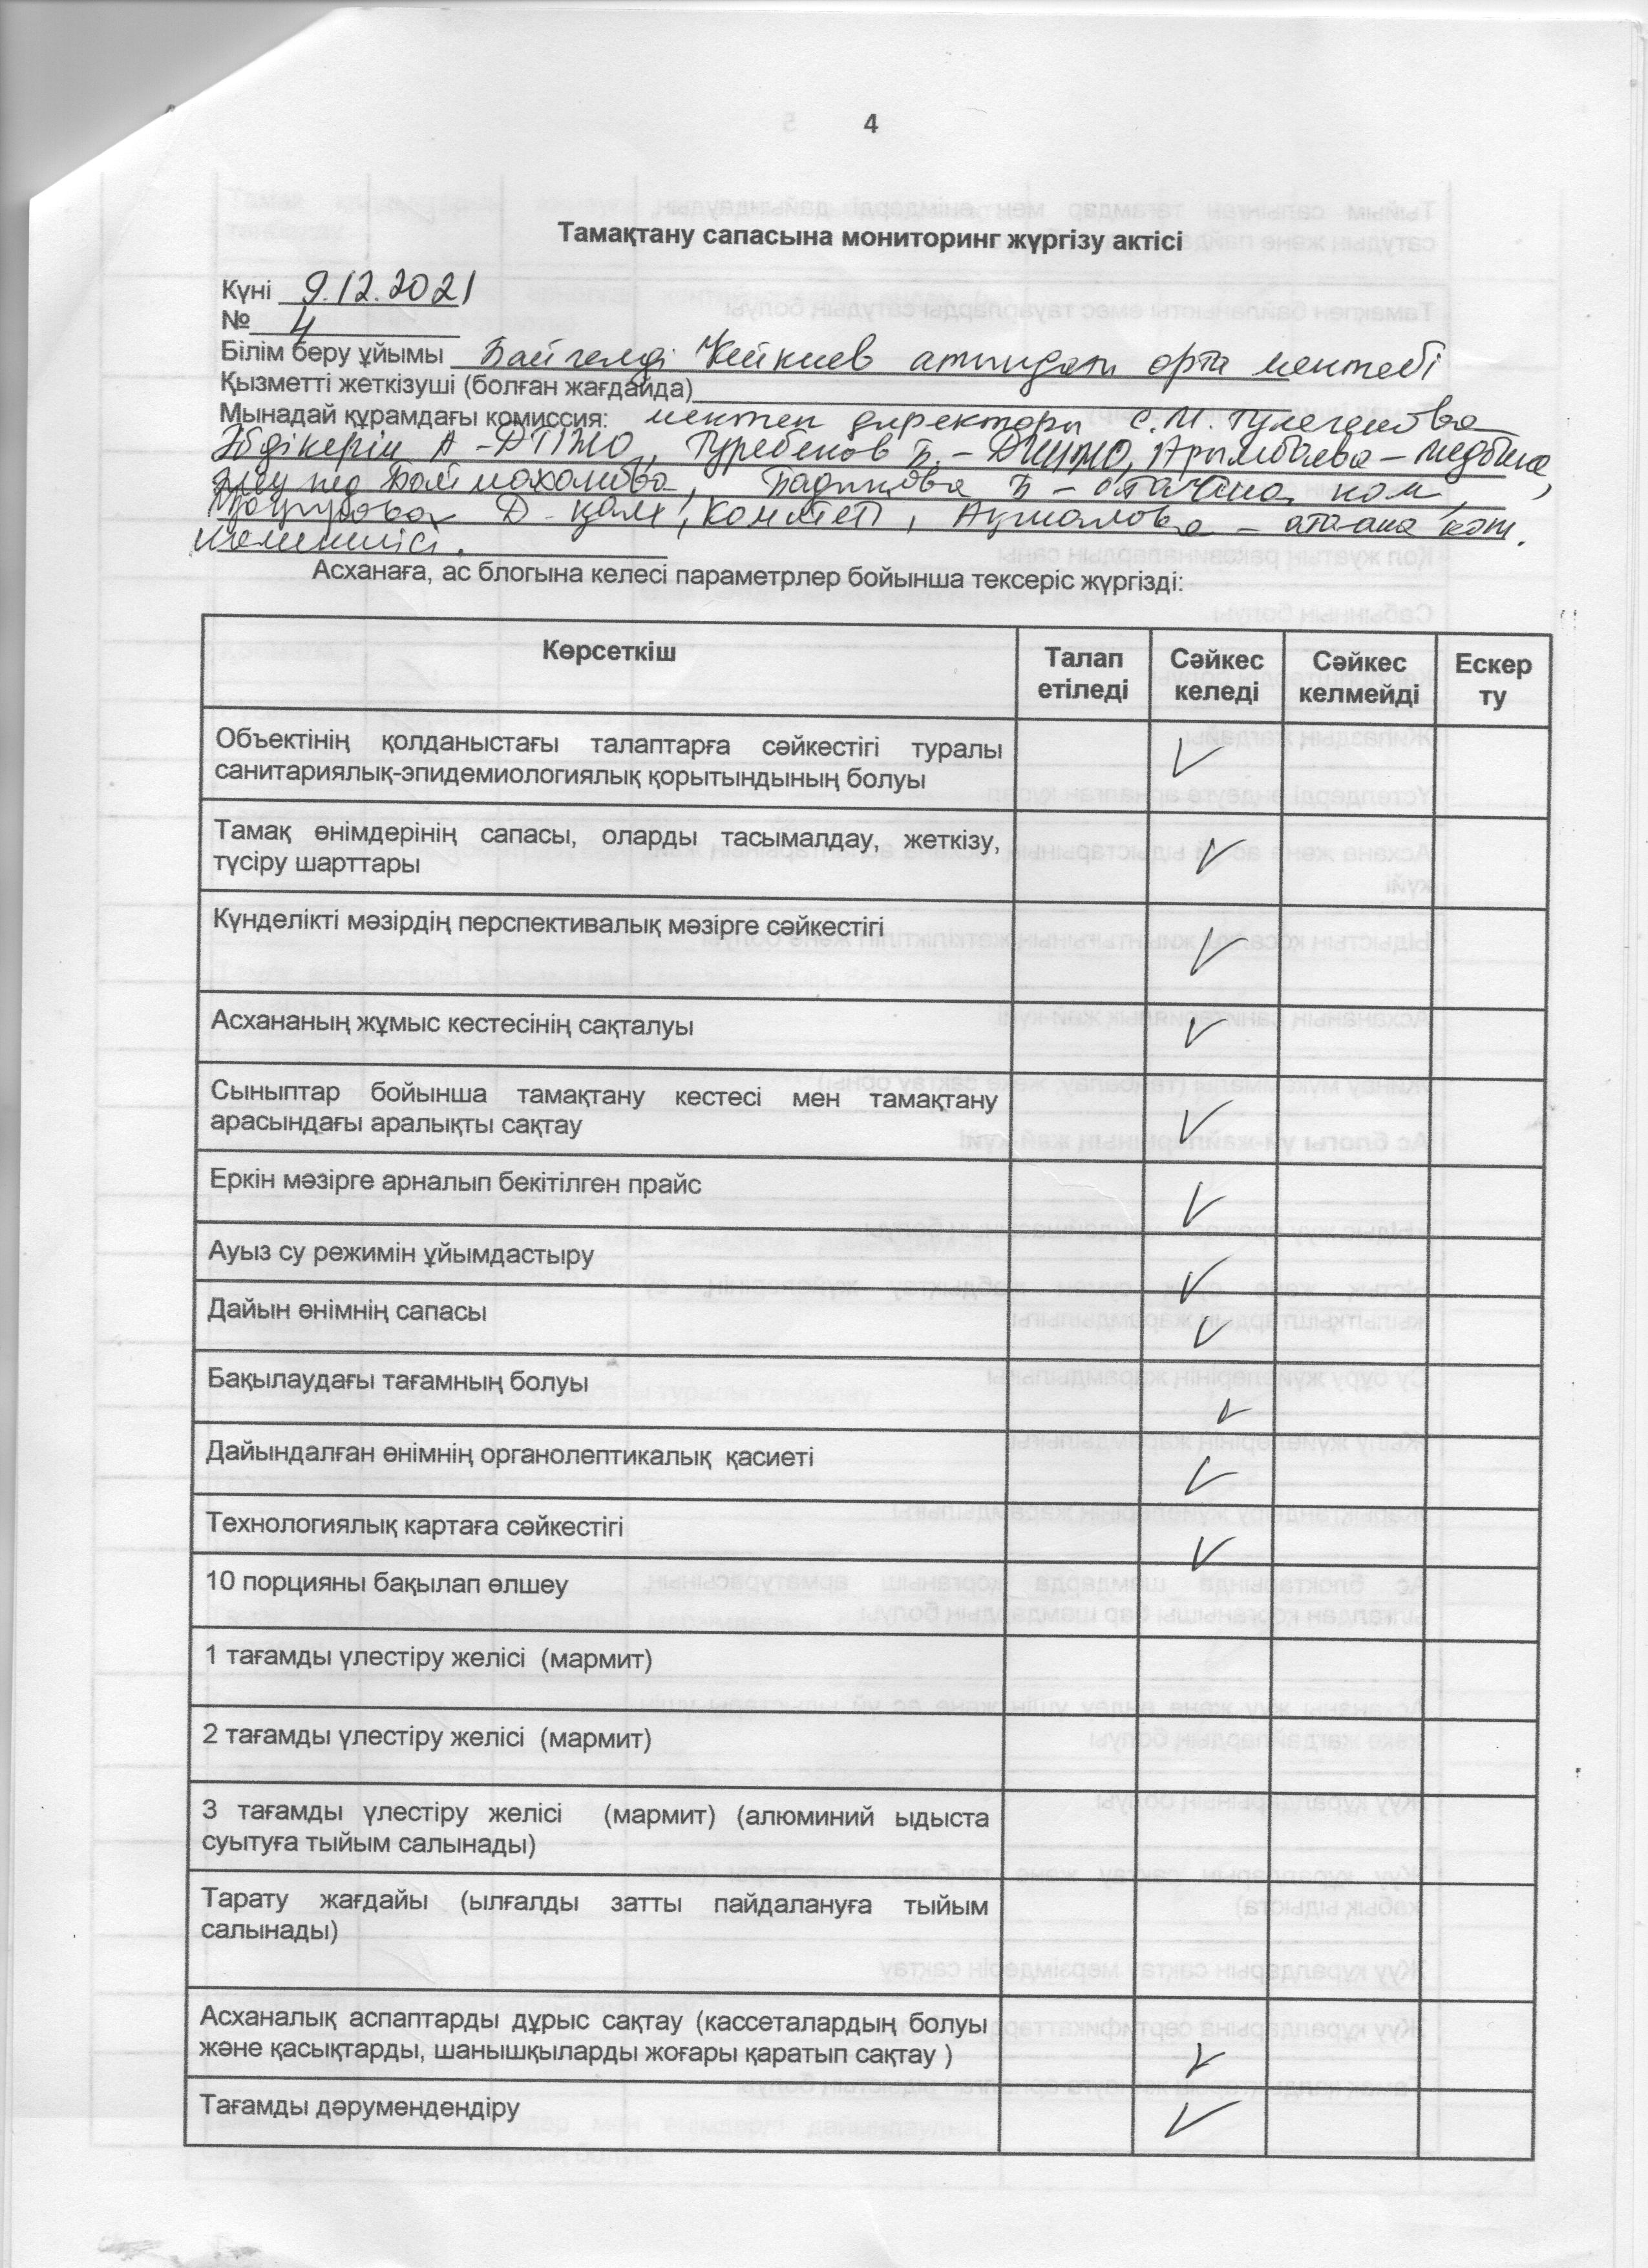 4
Тамақтану сапасына мониторинг жүргізу актісі
Күні 9.12.2021
№ 4
Білім беру ұйымы Байгелді атындағы орта мектебі
Қызметті жеткізуші (болған жағдайда)
Мынадай құрамдағы комиссия: мектеп директоры С.М. Тулегенова
Әбдікерім А - ДТІЖО, Туребеков Б. - Арымбаева - медбике,
Баймаханова, Б - ата-ана ком,
Д - қам. Комитеті, - ата-ана
Асханаға, ас блогына келесі параметрлер бойынша тексеріс жүргізді:
Көрсеткіш Талап етіледі Сәйкес келеді Сәйкес келмейді Ескер ту
Объектінің қолданыстағы талаптарға сәйкестігі туралы
санитариялық-эпидемиологиялық қорытындының болуы
Тамақ өнімдерінің сапасы, оларды тасымалдау, жеткізу,
түсіру шарттары
Күнделікті мәзірдің перспективалық мәзірге сәйкестігі
Асхананың жұмыс кестесінің сақталуы
Сыныптар бойынша тамақтану кестесі мен тамақтану
арасындағы аралықты сақтау
Еркін мәзірге арналып бекітілген прайс
Ауыз су режимін ұйымдастыру
Дайын өнімнің сапасы
Бақылаудағы тағамның болуы
Дайындалған өнімнің органолептикалық қасиеті
Технологиялық картаға сәйкестігі
10 порцияны бақылап өлшеу
1 тағамды үлестіру желісі (мармит)
2 тағамды үлестіру желісі (мармит)
3 тағамды үлестіру желісі (мармит) (алюминий ыдыста
суытуға тыйым салынады)
Тарату жағдайы (ылғалды затты пайдалануға тыйым
салынады)
Асханалық аспаптарды дұрыс сақтау (кассеталардың болуы
және қасықтарды, шанышқыларды жоғары қаратып сақтау )
Тағамды дәрумендендіру